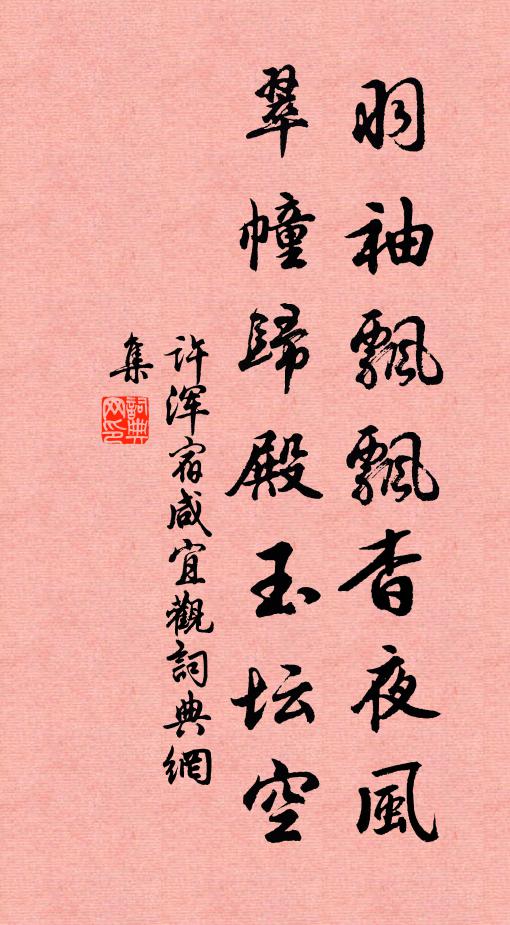 羽袖飄飄杳夜風
翠幢歸殿玉坛空
许浑宿咸宜觀詞典網
集
詞典网印